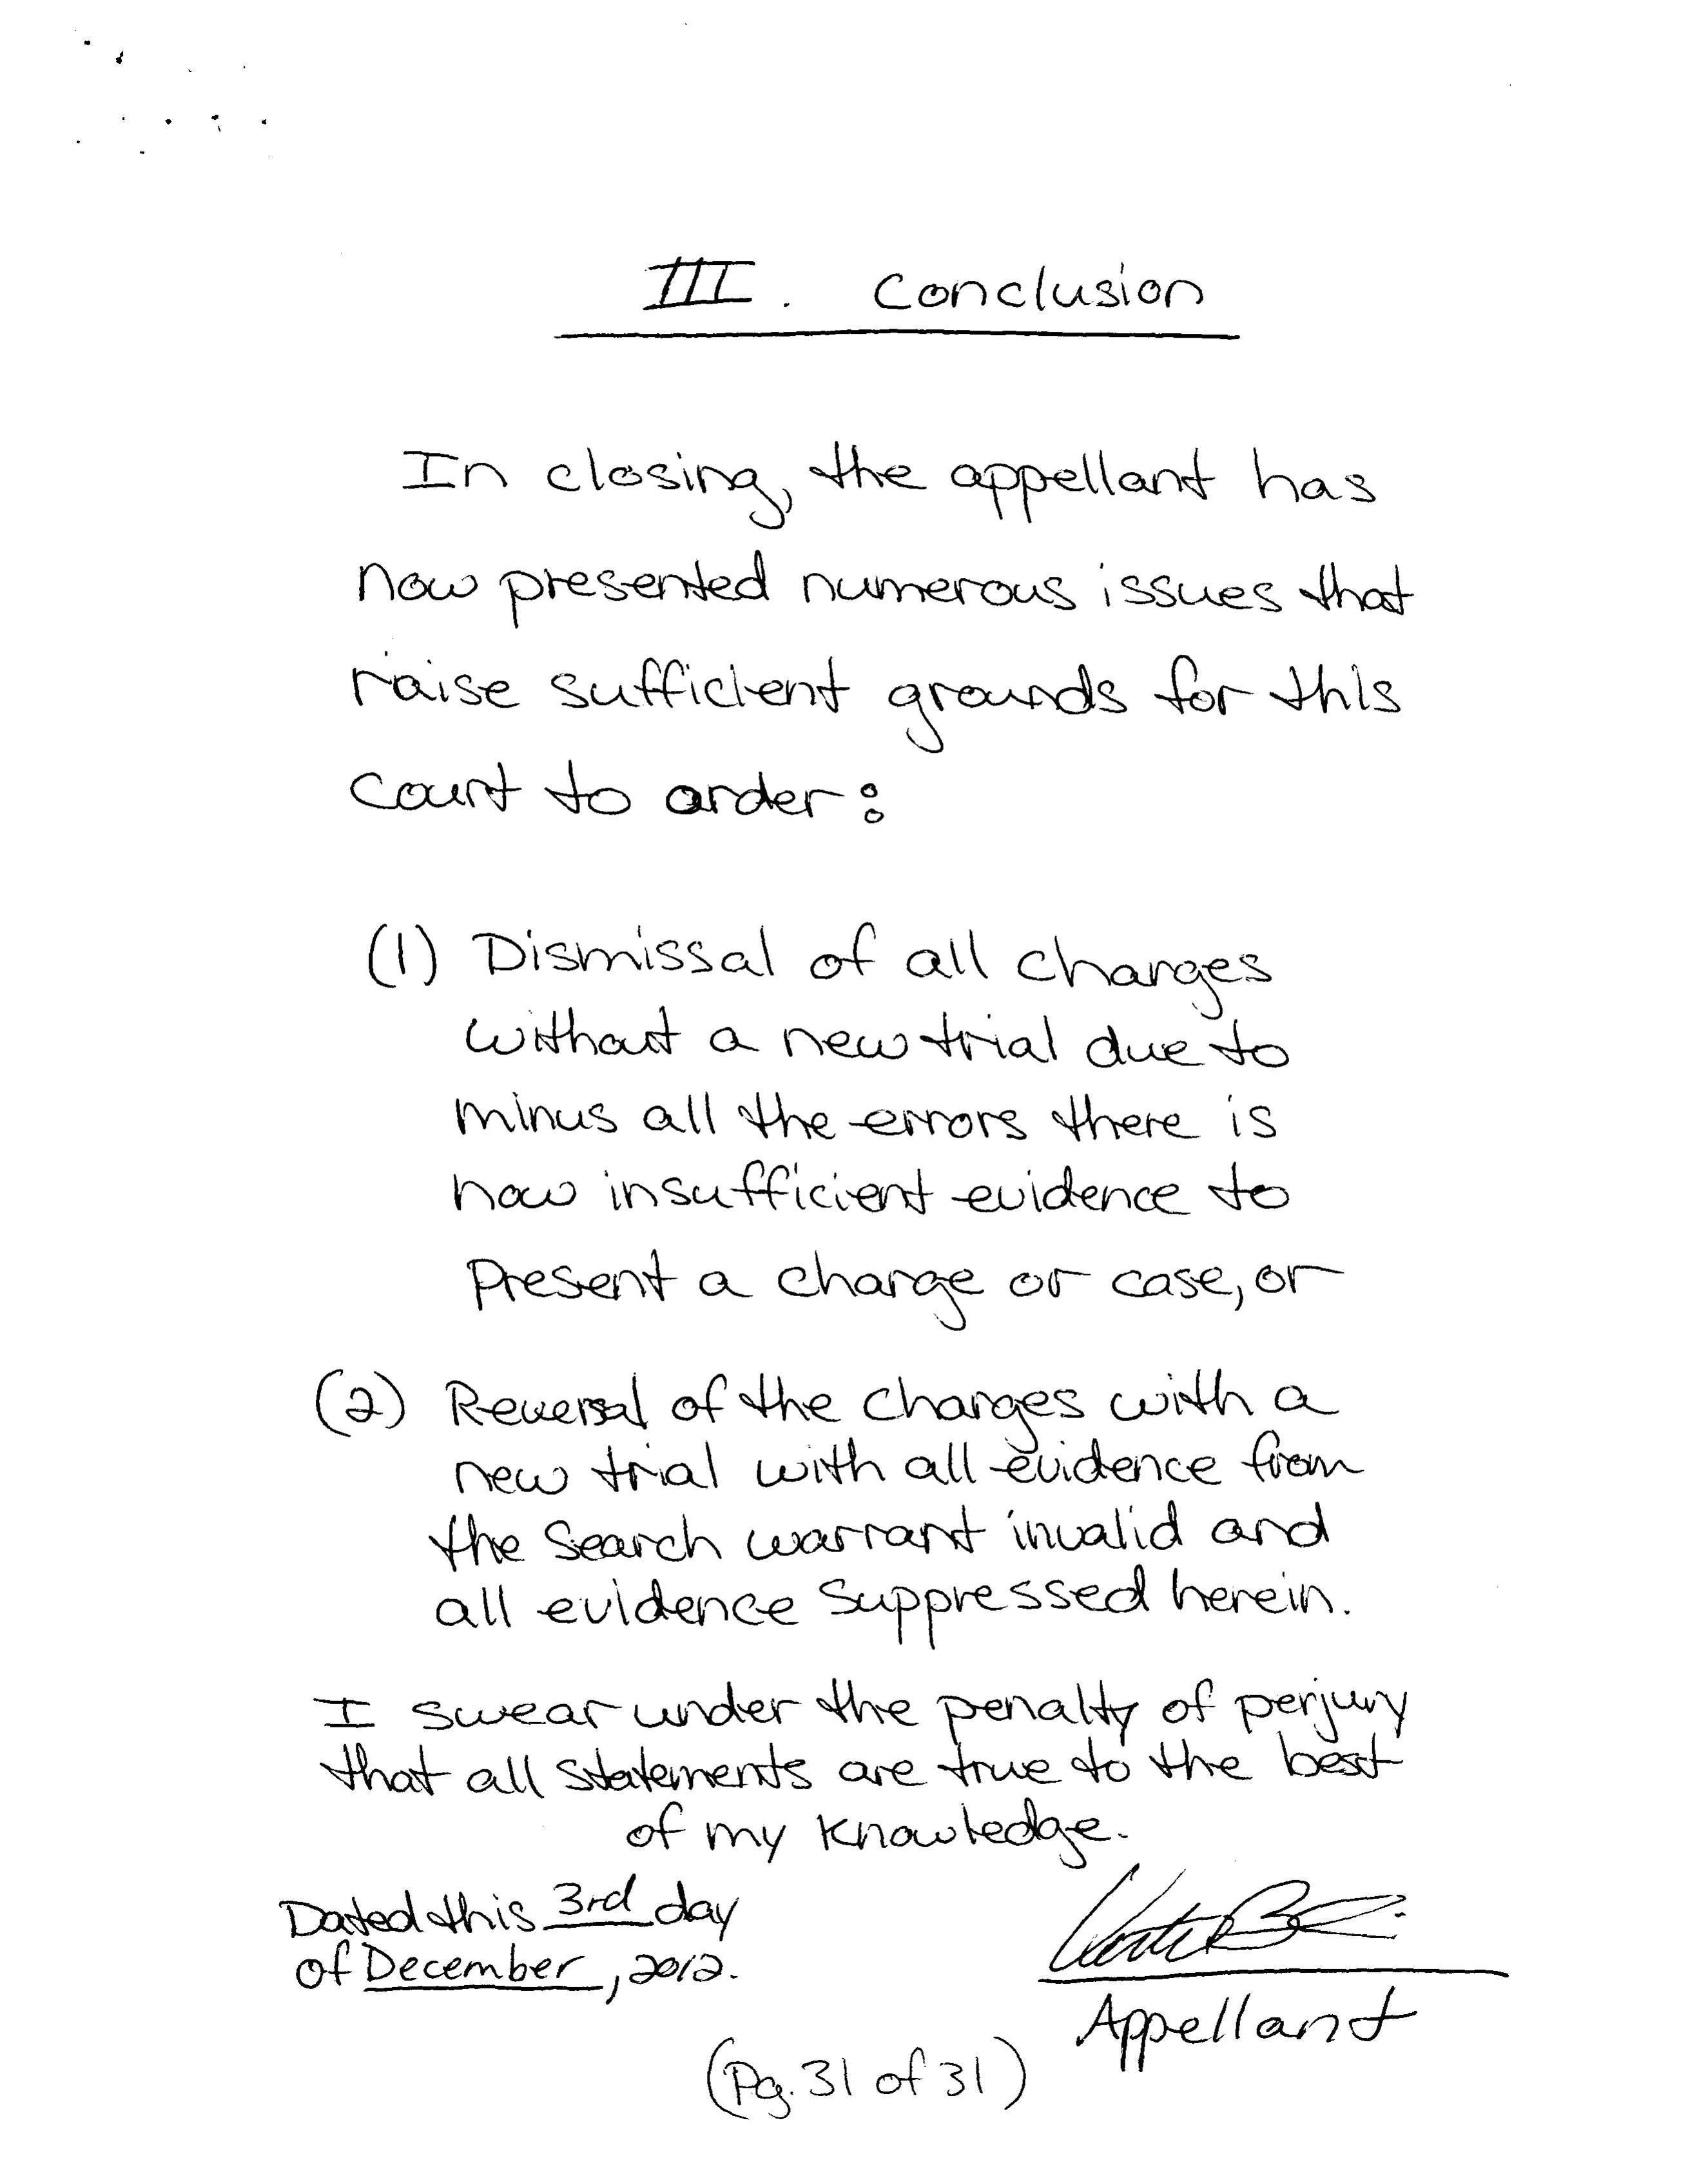 III. Conclusion
In closing, the appellant has
now presented numerous issues that
raise sufficient grounds for this
court to order:
(1) Dismissal of all charges
without a new trial due to
minus all the errors there is
now insufficient evidence to
present a charge or case, or
(2) Reversal of the charges with a
new trial with all evidence from
the search warrant invalid and
all evidence suppressed herein.
I swear under the penalty of perjury
that all statements are true to the best
of my knowledge.
Dated this 3rd day
of December, 2012.
Appellant
(Pg. 31 of 31)